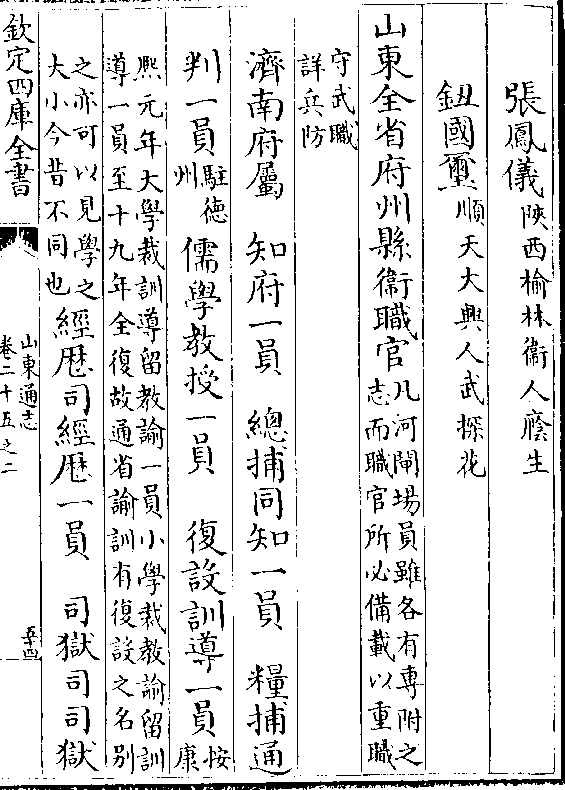 張鳳儀陝西榆林衛人廕生
鈕國璽順天大興人武探花
山東全省府州縣衛職官
凡河閘場員雖各有專附之
志而職官所必備載以重職
守武職
詳兵防
濟南府屬　知府一員　總捕同知一員　糧捕通
判一員
駐德
州
儒學教授一員　復設訓導一員
按
康
熙元年大學裁訓導留教諭一員小學裁教諭留訓
導一員至十九年全復故通省諭訓有復設之名別
之亦可以見學之
大小今昔不同也
經厯司經厯一員　司獄司司獄
欽定四庫全書
山東通志
卷二十五之二
五十四